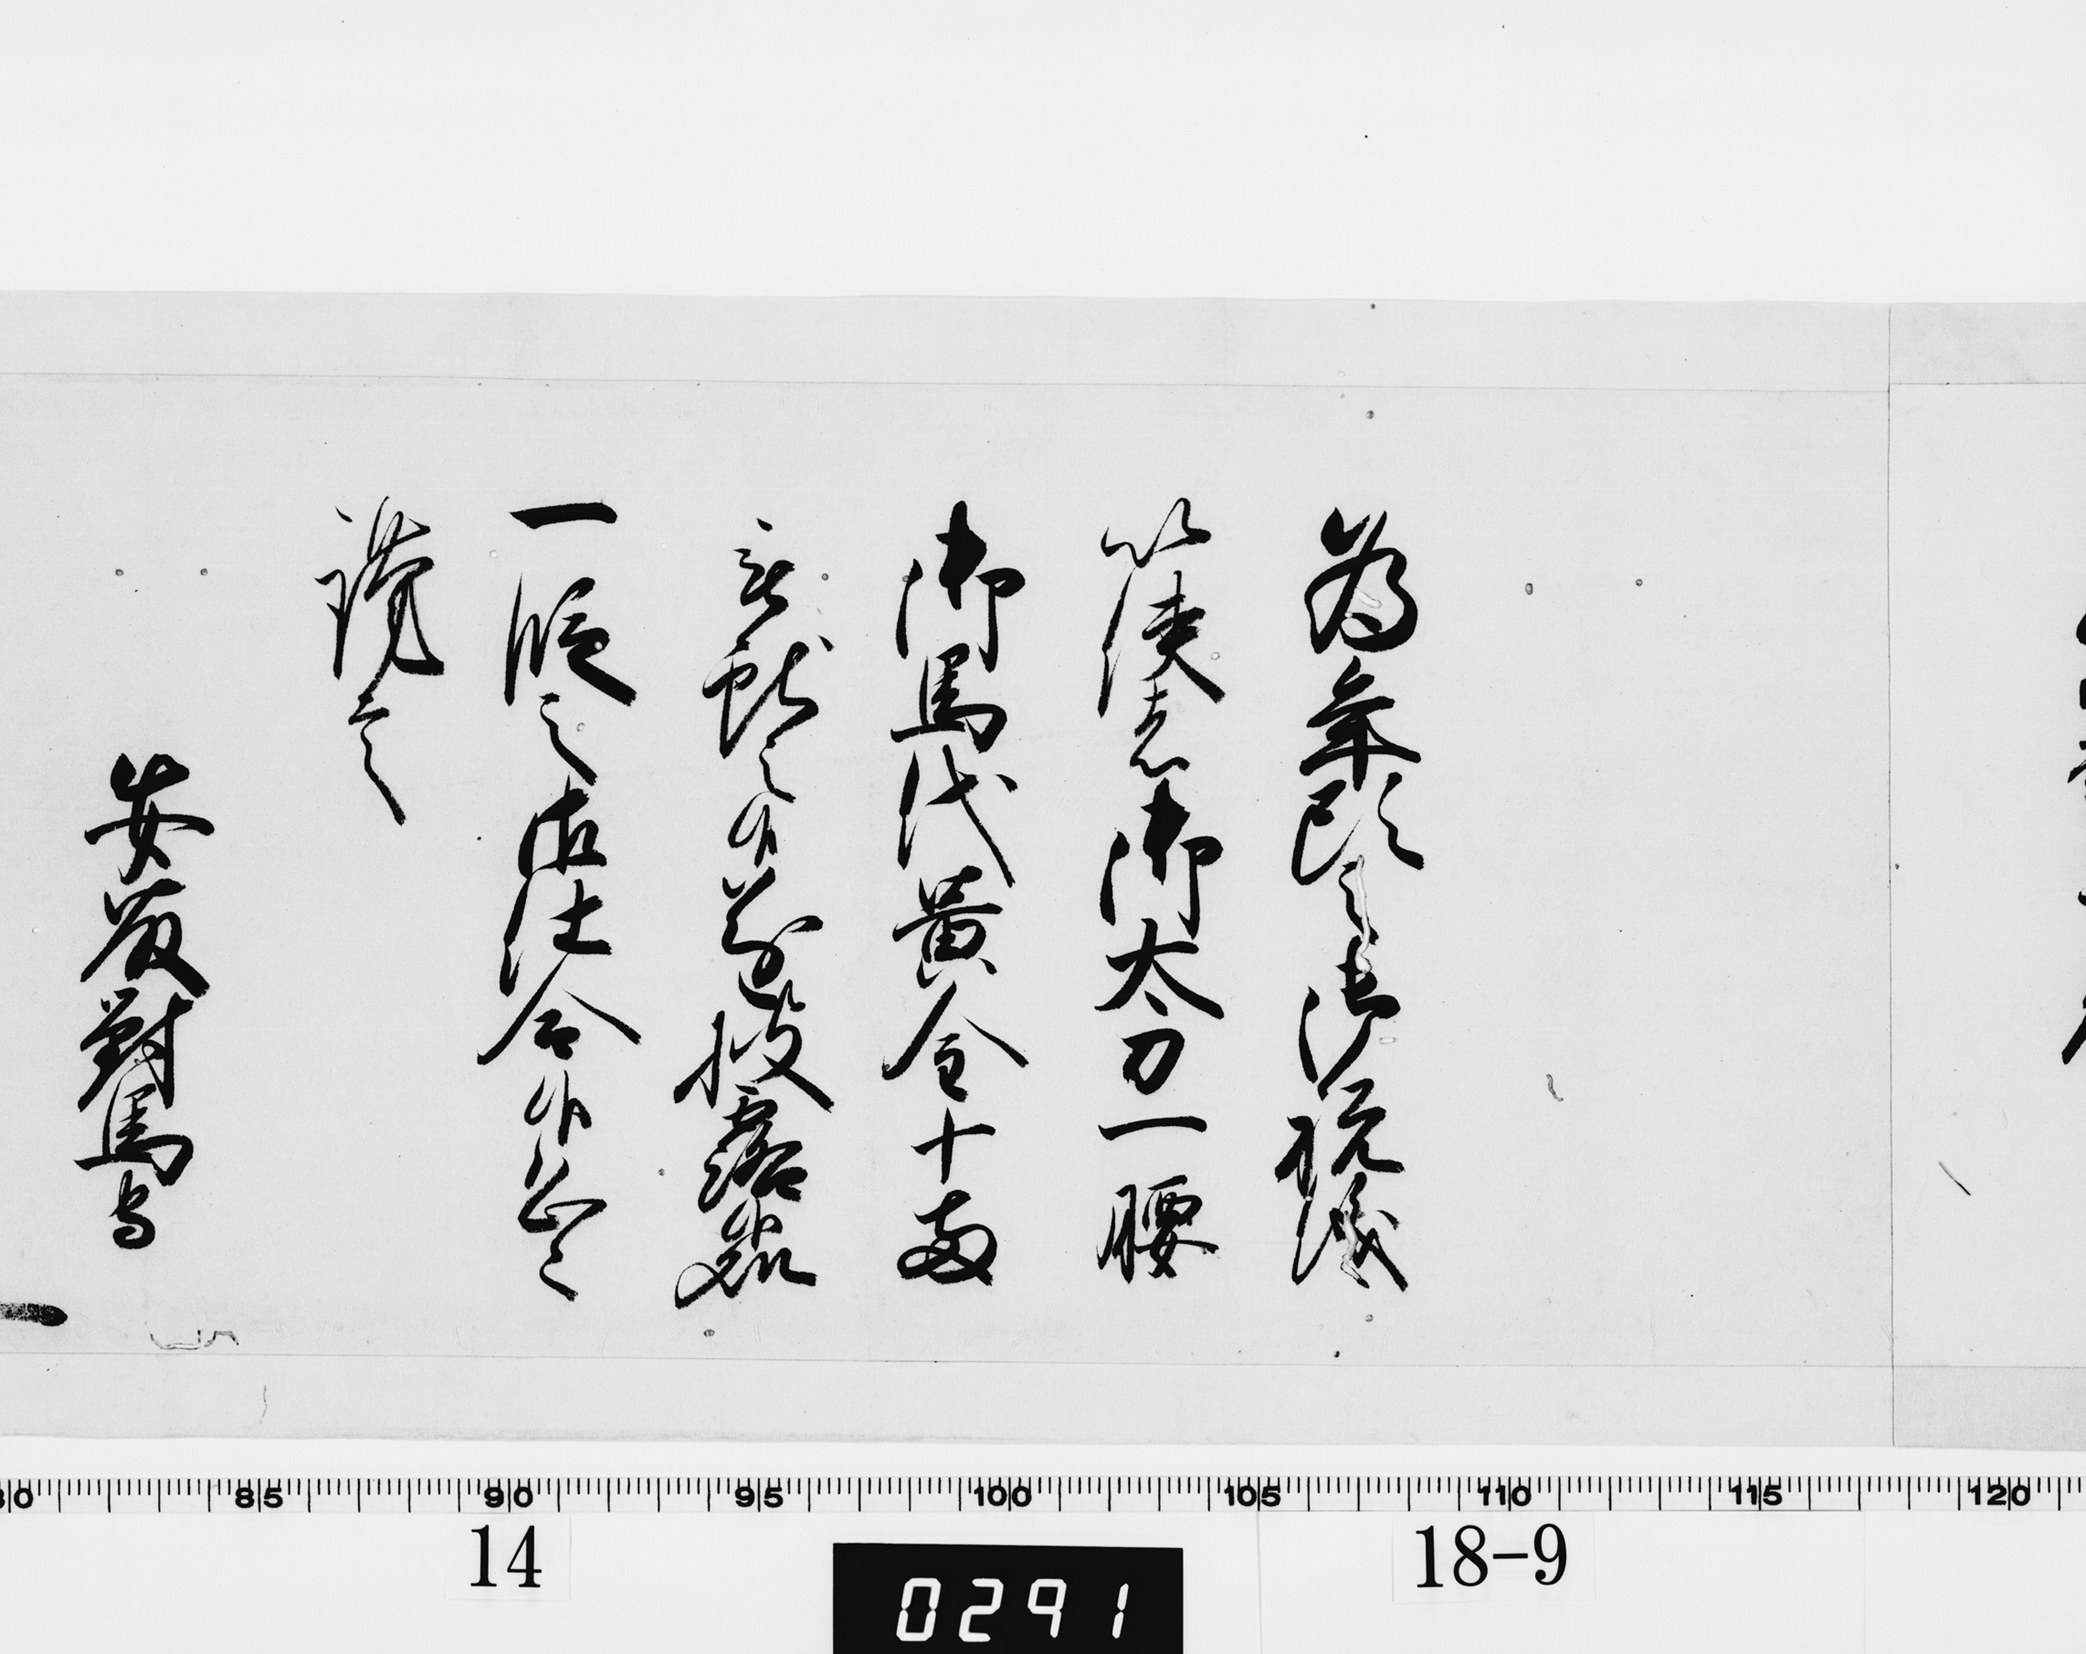 為年頭之御祝儀
以使者御太刀一腰
御馬代黄金十両
被献之候遂披露候処
一段之御仕合候恐々
謹言
安藤對馬守
85 90 95 100 105 110 115 120
14
18-9
0291